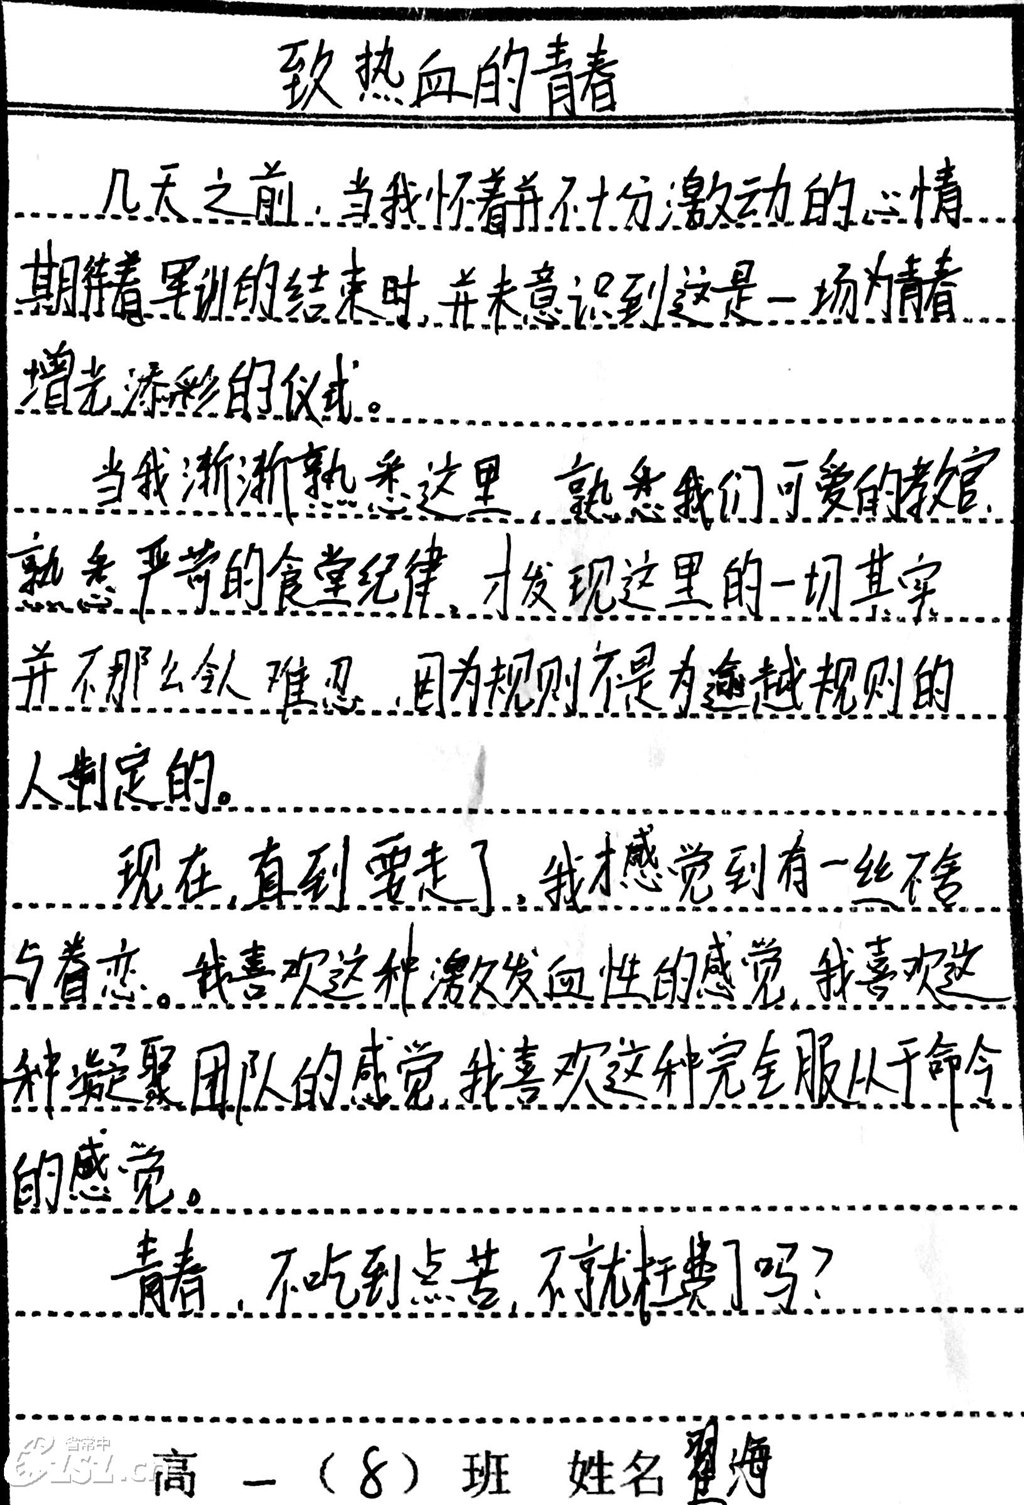 致热血的青春
几天之前，当我怀着并不十分激动的心情
期待着军训的结束时，并未意识到这是一场为青春
增光添彩的仪式。
当我渐渐熟悉这里，熟悉我们可爱的教官，
熟悉严苛的食堂纪律，才发现这里的一切其实
并不那么令人难忍，因为规则不是为逾越规则的
人制定的。
现在，直到要走了，我才感觉到有一丝不舍
与眷恋。我喜欢这种激发血性的感觉，我喜欢这
种凝聚团队的感觉，我喜欢这种完全服从于命令
的感觉。
青春，不吃到点苦，不就枉费了吗？
高一（8）班 姓名 翟海
省常中